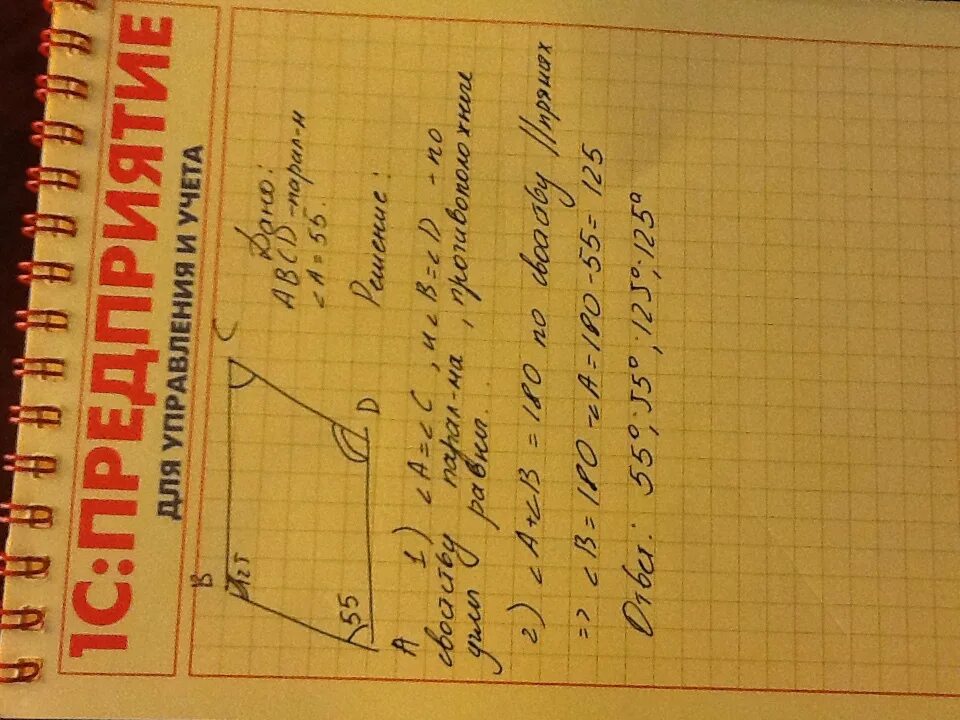 1С:ПРЕДПРИЯТИЕ
ДЛЯ УПРАВЛЕНИЯ И УЧЕТА
B
C
125
55
A
D
Дано:
ABCD - парал-м
∠A = 55.
Решение:
1) ∠A = ∠C, и ∠B = ∠D - по
свойству парал-ма, противоположные
углы равны.
2) ∠A + ∠B = 180 по свойству // прямых
=> ∠B = 180 - ∠A = 180 - 55 = 125
Ответ: 55°, 55°, 125°, 125°